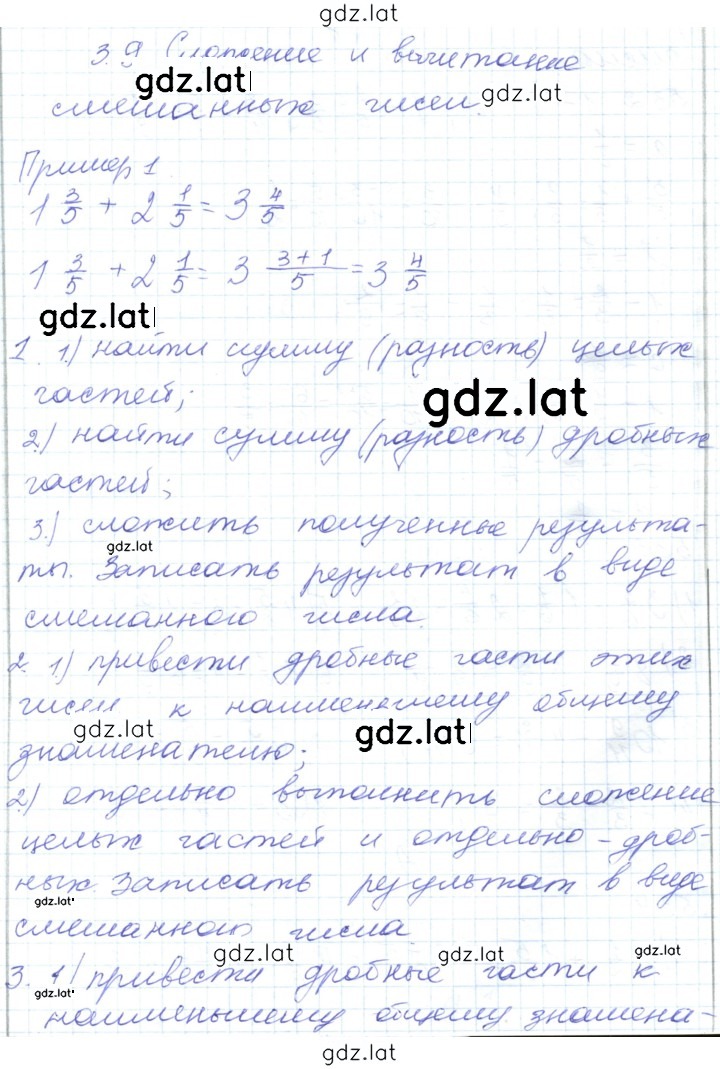 gdz.lat
3.9 Сложение и вычитание
gdz.lat
смешанных чисел. gdz.lat
Пример 1
1 3/5 + 2 1/5 = 3 4/5
1 3/5 + 2 1/5 = 3 (3+1)/5 = 3 4/5
gdz.lat
1. 1) найти сумму (разность) целых
частей; gdz.lat
2) найти сумму (разность) дробных
частей;
3) сложить полученные результа-
gdz.lat
ты. Записать результат в виде
смешанного числа.
2. 1) привести дробные части этих
чисел к наименьшему общему
gdz.lat gdz.lat
знаменателю;
2) отдельно выполнить сложение
целых частей и отдельно - дроб-
ных. Записать результат в виде
gdz.lat
смешанного числа.
gdz.lat gdz.lat gdz.lat
3. 1) привести дробные части к
gdz.lat
наименьшему общему знамена-
gdz.lat